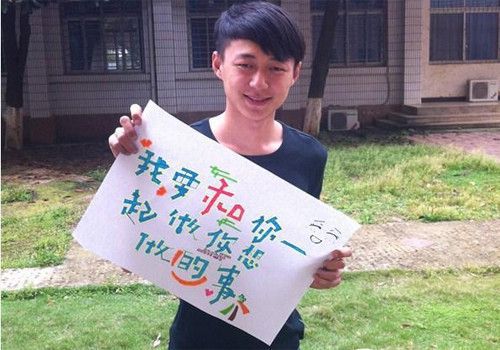 我要和你一
起做你想
做的事